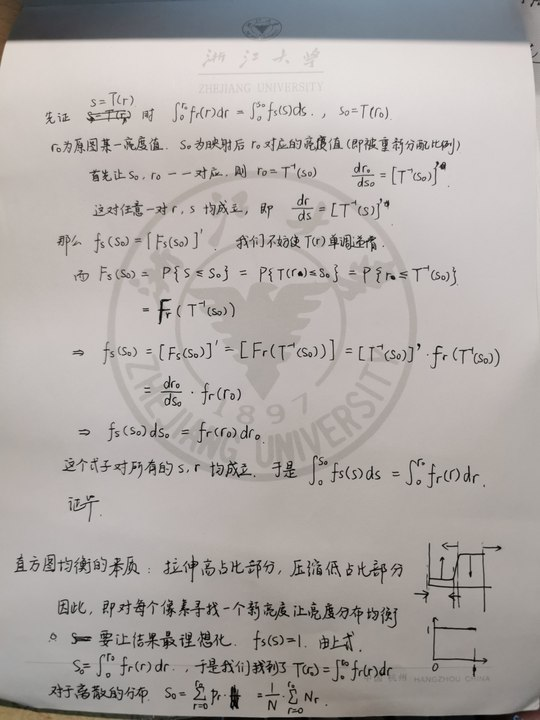 浙江大学
ZHEJIANG UNIVERSITY
先证 s=T(r) 时 ∫₀^{r₀} fr(r)dr = ∫₀^{s₀} fs(s)ds. , s₀=T(r₀).
r₀为原图某一亮度值. s₀为映射后r₀对应的亮度值(即被重新分配比例)
首先让s₀, r₀一一对应, 则 r₀=T⁻¹(s₀) dr₀/ds₀ = [T⁻¹(s₀)]'.
这对任意一对r, s均成立, 即 dr/ds = [T⁻¹(s)]'.
那么 fs(s₀) = [Fs(s₀)]'. 我们不妨使T(r)单调递增.
而 Fs(s₀) = P{s≤s₀} = P{T(r)≤s₀} = P{r≤T⁻¹(s₀)}
= Fr(T⁻¹(s₀))
⇒ fs(s₀) = [Fs(s₀)]' = [Fr(T⁻¹(s₀))] = [T⁻¹(s₀)]' · fr(T⁻¹(s₀))
= dr₀/ds₀ · fr(r₀)
⇒ fs(s₀)ds₀ = fr(r₀)dr₀.
这个式子对所有的s, r均成立. 于是 ∫₀^{s₀} fs(s)ds = ∫₀^{r₀} fr(r)dr.
证毕.
1897
ZHEJIANG UNIVERSITY
直方图均衡的本质: 拉伸高占比部分, 压缩低占比部分
因此, 即对每个像素寻找一个新亮度让亮度分布均衡
要让结果最理想化. fs(s)=1. 由上式.
s₀=∫₀^{r₀} fr(r)dr. , 于是我们找到了T(r₀)=∫₀^{r₀} fr(r)dr
对于离散的分布. s₀ = Σ_{r=0}^{r₀} pr · = 1/N · Σ_{r=0}^{r₀} Nr.
1
0
中国 杭州 HANGZHOU CHINA